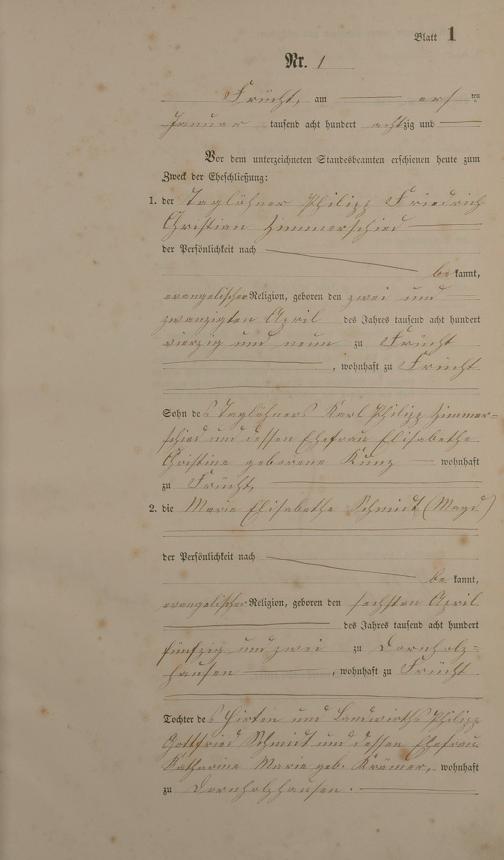 Blatt 1
Nr. 1
Frücht, am ersten
Januar tausend acht hundert achtzig und
Vor dem unterzeichneten Standesbeamten erschienen heute zum
Zweck der Eheschließung:
1. der Taglöhner Philipp Friedrich
Christian Zimmerschied
der Persönlichkeit nach
bekannt,
evangelischer Religion, geboren den zwei und
zwanzigsten April des Jahres tausend acht hundert
vierzig und neun zu Frücht
, wohnhaft zu Frücht
Sohn des Taglöhners Karl Philipp Zimmer-
schied und dessen Ehefrau Elisabethe
Christine geborene Kunz wohnhaft
zu Frücht
2. die Marie Elisabethe Schmidt (Magd)
der Persönlichkeit nach
bekannt,
evangelischer Religion, geboren den sechsten April
des Jahres tausend acht hundert
fünfzig und zwei zu Dornholz-
hausen, wohnhaft zu Frücht
Tochter des Hirten und Landwirths Philipp
Gottfried Schmidt und dessen Ehefrau
Katharine Marie geb. Krämer, wohnhaft
zu Dornholzhausen.